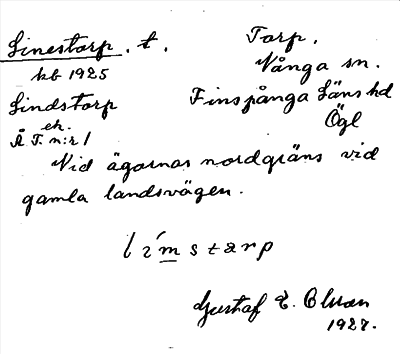 Linestorp. t. Torp.
kb 1925 Vånga sn.
Lindstorp Finspånga Läns hd
Ögl
eh.
Å T. n:r 1
Vid ägornas nordgräns vid
gamla landsvägen.
Gustaf E. Olsson
1927.